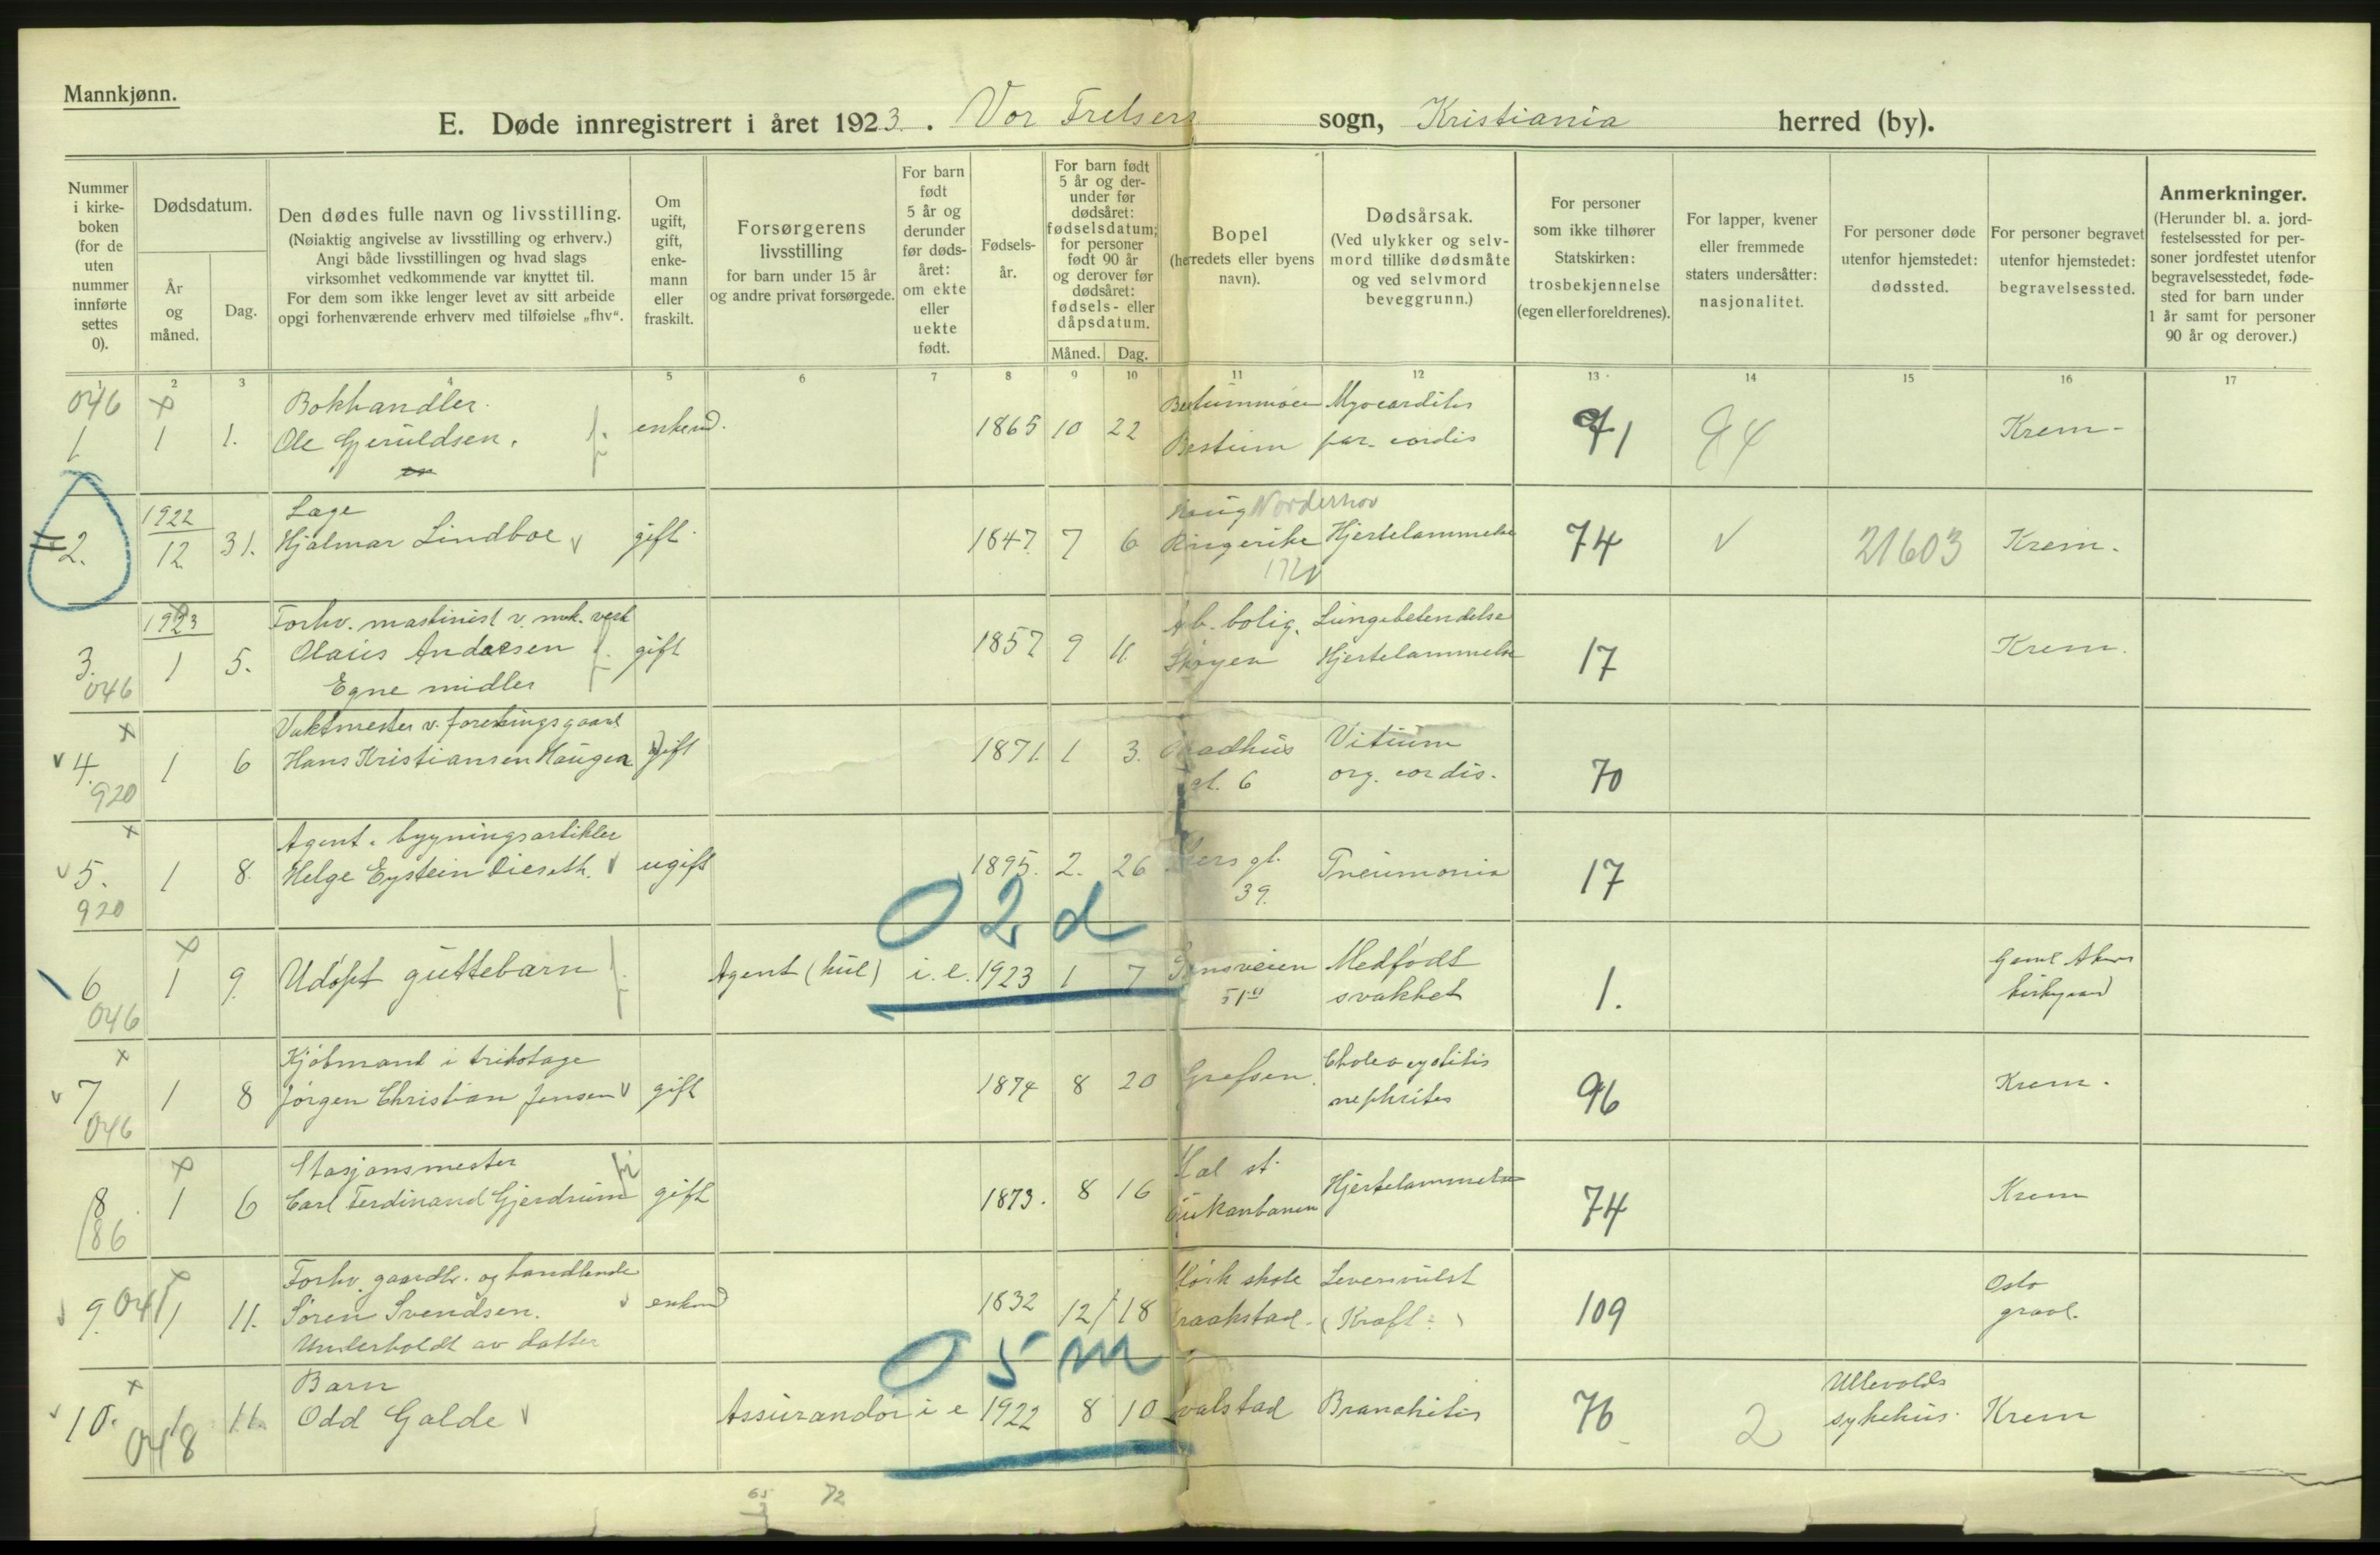 Mannkjønn.
E. Døde innregistrert i året 1923. Vor Frelsers sogn, Kristiania herred (by).
Nummer i kirke-boken (for de uten nummer innførte settes 0).
Dødsdatum.
År og måned.
Dag.
Den dødes fulle navn og livsstilling.
(Nøiaktig angivelse av livsstilling og erhverv.)
Angi både livsstillingen og hvad slags
virksomhet vedkommende var knyttet til.
For dem som ikke lenger levet av sitt arbeide
opgi forhenværende erhverv med tilføielse „fhv“.
Om ugift, gift, enke-mann eller fraskilt.
Forsørgerens livsstilling
for barn under 15 år
og andre privat forsørgede.
For barn født 5 år og derunder før døds-året: om ekte eller uekte født.
Fødsels-år.
For barn født 5 år og der-under før dødsåret: fødselsdatum; for personer født 90 år og derover før dødsåret: fødsels- eller dåpsdatum.
Måned. Dag.
Bopel
(herredets eller byens navn).
Dødsårsak.
(Ved ulykker og selv-mord tillike dødsmåte og ved selvmord beveggrunn.)
For personer som ikke tilhører Statskirken: trosbekjennelse (egen eller foreldrenes).
For lapper, kvener eller fremmede staters undersåtter: nasjonalitet.
For personer døde utenfor hjemstedet: dødssted.
For personer begravet utenfor hjemstedet: begravelsessted.
Anmerkninger.
(Herunder bl. a. jord-festelsessted for per-soner jordfestet utenfor begravelsesstedet, føde-sted for barn under 1 år samt for personer 90 år og derover.)
1 2 3 4 5 6 7 8 9 10 11 12 13 14 15 16 17
046 x Bokhandler. Myocarditis
1 1 1. Ole Gjeruldsen. enkem. 1865 10 22 Bestum par. cordis 91 94 Krem-
1922 Læge Haug Norderhov
2. 12 31. Hjalmar Lindboe v gift 1847 7 6 Ringerike Hjertelammelse 74 v 21603 Krem.
1923 Forhv. maskinist v. mek. verk Arb. bolig. Lungebetendelse
3. 1 5. Olaus Andersen gift 1857 9 11 Skøyen Hjertelammelse 17 Krem.
046 Egne midler
x Vaktmester v. foreningsgaard
v 4. 1 6 Hans Kristiansen Haugen gift 1871. 1 3. Raadhus Vitium 70
920 gt. 6 org. cordis.
x Agent. bygningsartikler
v 5. 1 8 Helge Eystein Dieseth. v ugift 1895. 2. 26 Akers gt. Pneumonia 17
920 39.
0 2 d
x
6 1 9. Udøpt guttebarn Agent (hul) i. e. 1923 1 7 Ensveien Medfødt 1. Gaml Akers
046 51 II svakhet kirkegaard
x Kjøbmand i trikotage
v 7 1 8 Jørgen Christian Jensen v gift 1874 8 20 Grefsen nephritis 96 Krem.
046
x Stasjonsmester Hal st.
8 1 6 Carl Ferdinand Gjerdrum gift 1873. 8 16 Hjertelammelse 74 Krem
186
Forhv. gaardbr. og handlende skole Leversvulst Oslo
v 9. 041 1 11. Søren Svendsen. v enkem 1832 12/ 18 Kraakstad. (Kræft) 109 gravl.
Underholdt av datter
0 5 m
x Barn Ullevolds
v 10. 1 11. Odd Galde v Assurandør i e 1922 8 10 Hvalstad Bronchitis 76 2 sykehus. Krem
048
65 72